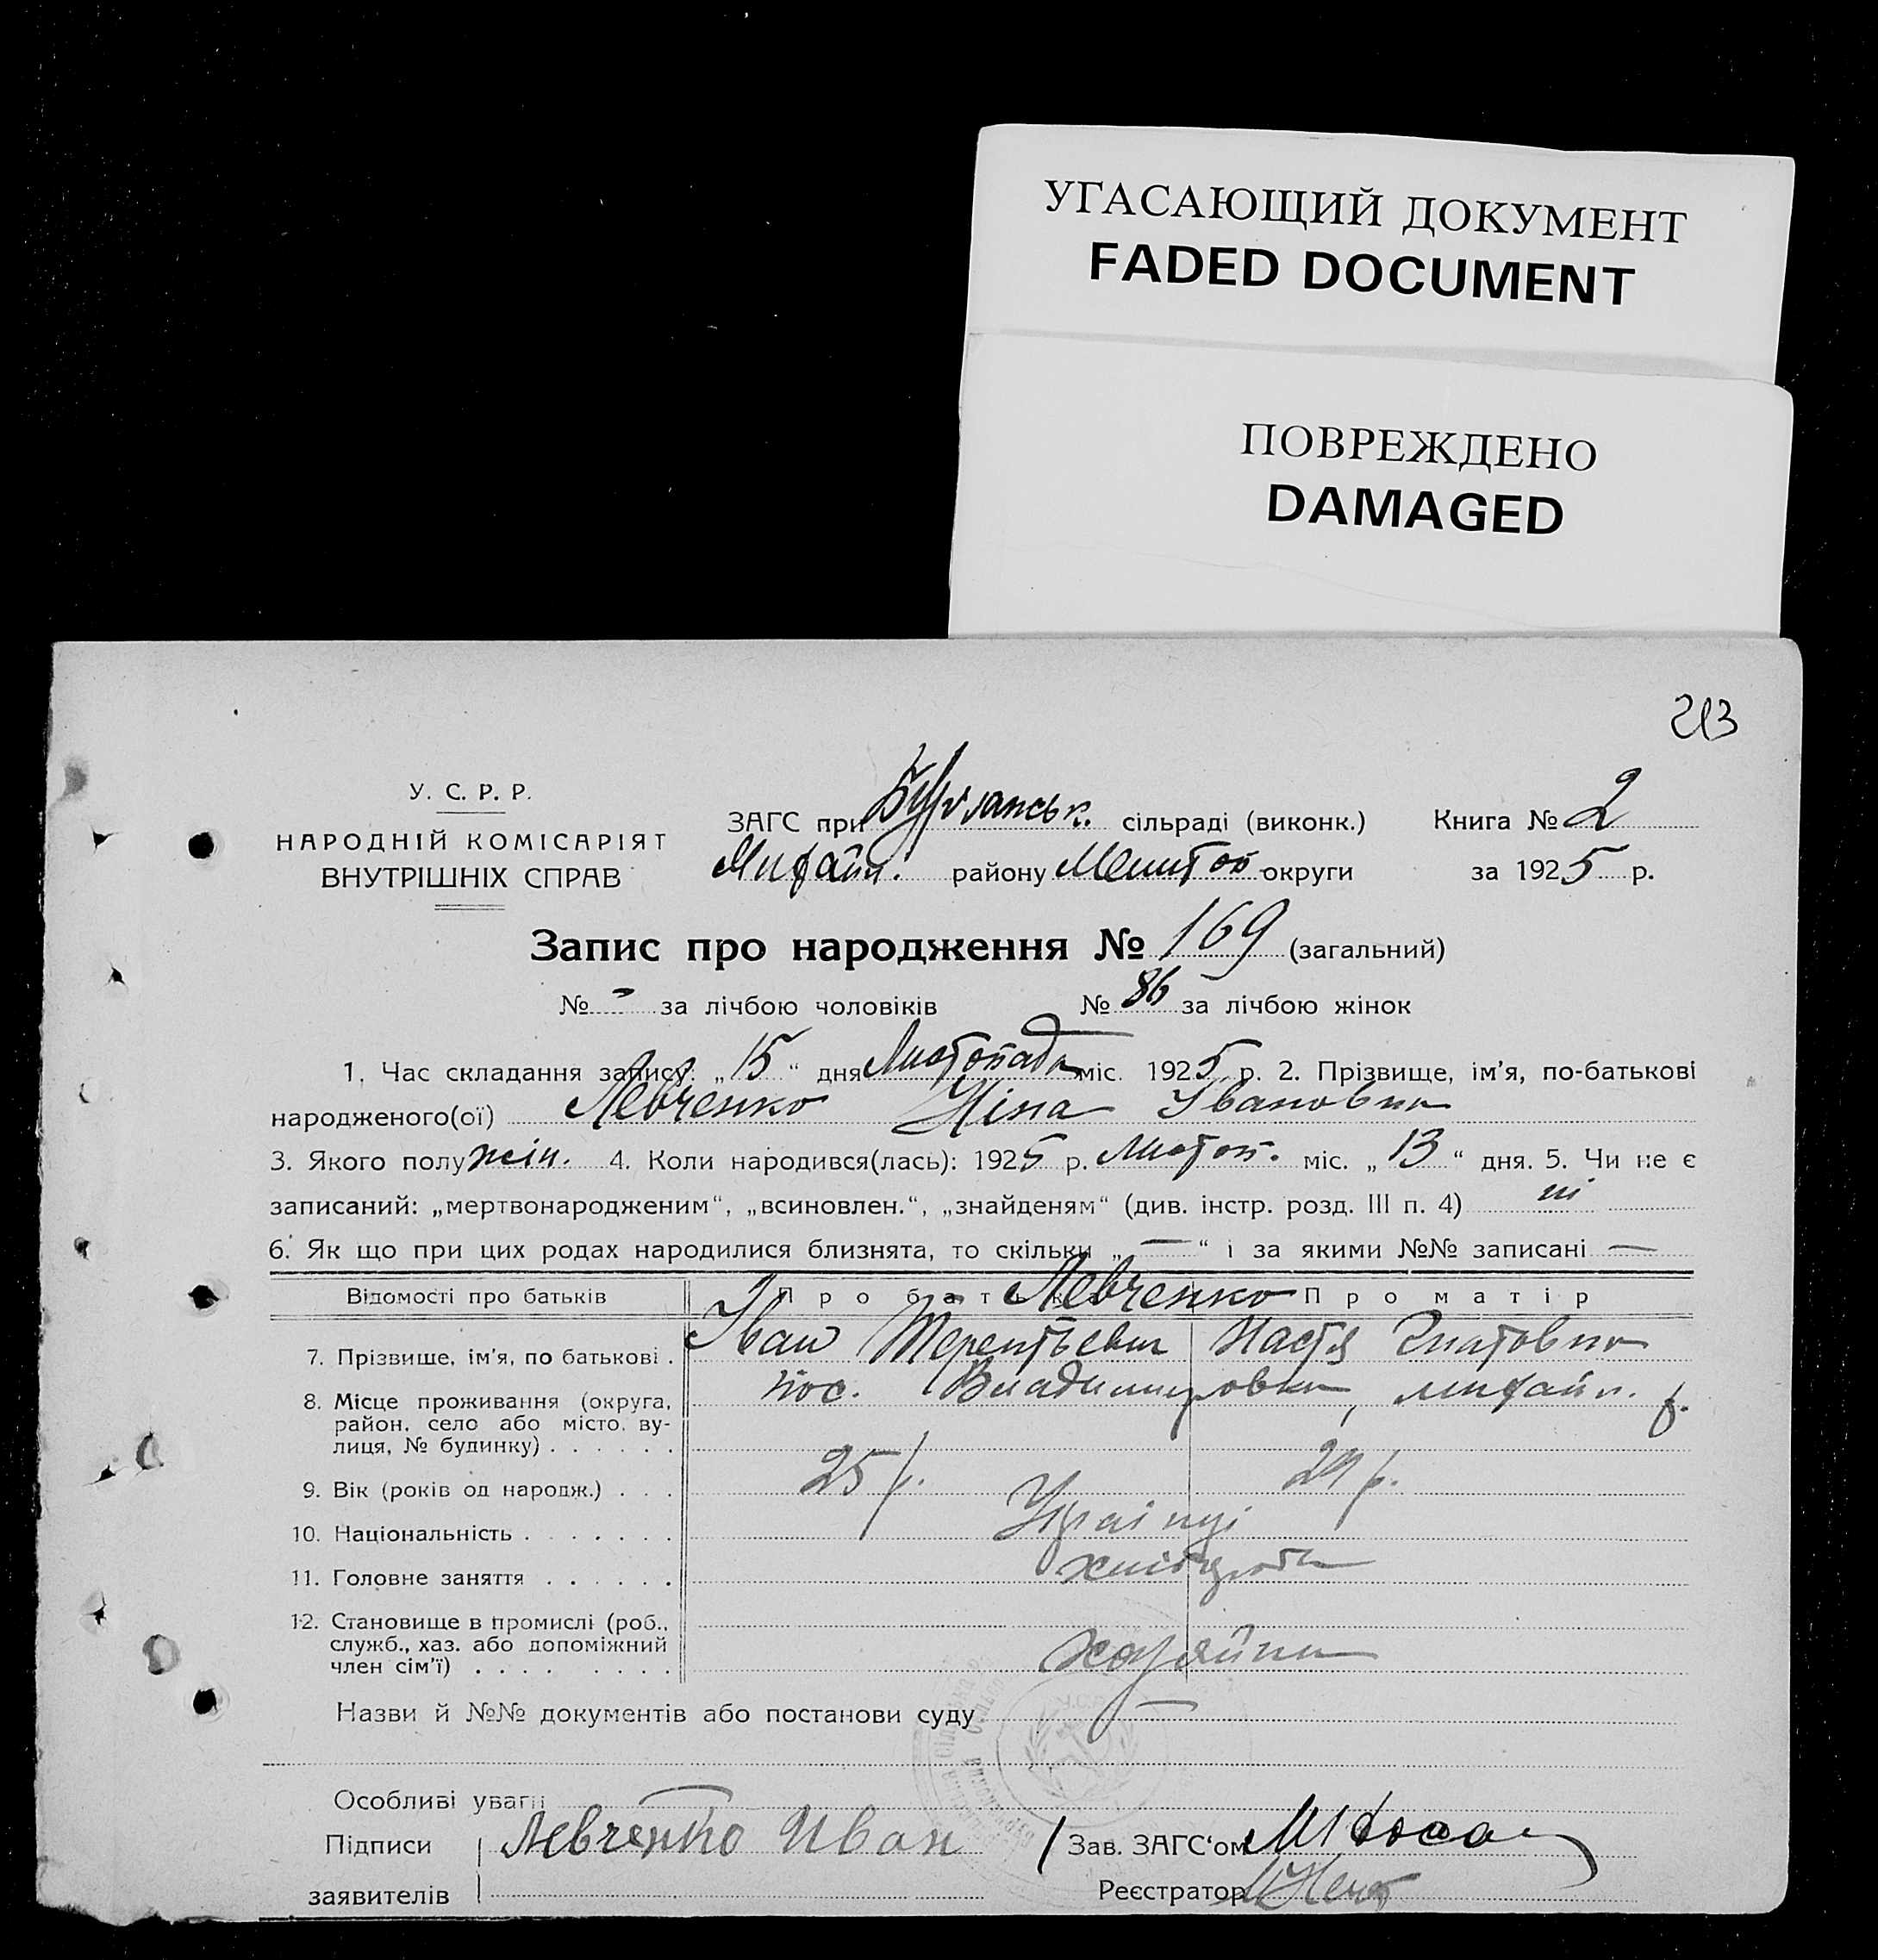 УГАСАЮЩИЙ ДОКУМЕНТ
FADED DOCUMENT
ПОВРЕЖДЕНО
DAMAGED
213
У. С. Р. Р.
НАРОДНІЙ КОМІСАРІЯТ
ВНУТРІШНІХ СПРАВ
ЗАГС при сільраді (виконк.) Книга № 2
Михайл. району Мелитоп округи за 1925 р.
Запис про народження № 169 (загальний)
№ - за лічбою чоловіків № 86 за лічбою жінок
1. Час складання запису: „15“ дня Листопада міс. 1925 р. 2. Прізвище, ім'я, по-батькові
народженого(ої) Левченко Ніна Івановна
3. Якого полу жін. 4. Коли народився(лась): 1925 р. Листоп. міс. „13“ дня. 5. Чи не є
записаний: „мертвонародженим“, „всиновлен.“, „знайденям“ (див. інстр. розд. III п. 4) ні
6. Як що при цих родах народилися близнята, то скільки „—“ і за якими №№ записані —
Відомості про батьків Про батька Левченко Про матір
7. Прізвище, ім'я, по батькові . Іван Терентьевич Настя Гнатовна
8. Місце проживання (округа, пос. Владимировка, михайл. р.
район, село або місто, ву-
лиця, № будинку) . . . . . .
9. Вік (років од народж.) . . . 25 р. 24 р.
10. Національність . . . . . . . Українці
11. Головне заняття . . . . . . хлібороби
12. Становище в промислі (роб.,
служб., хаз. або допоміжний Хазяїни
член сім'ї) . . . . . . . .
Назви й №№ документів або постанови суду —
Особливі уваги —
Підписи Левченко Иван Зав. ЗАГС'ом
заявителів Реєстратор